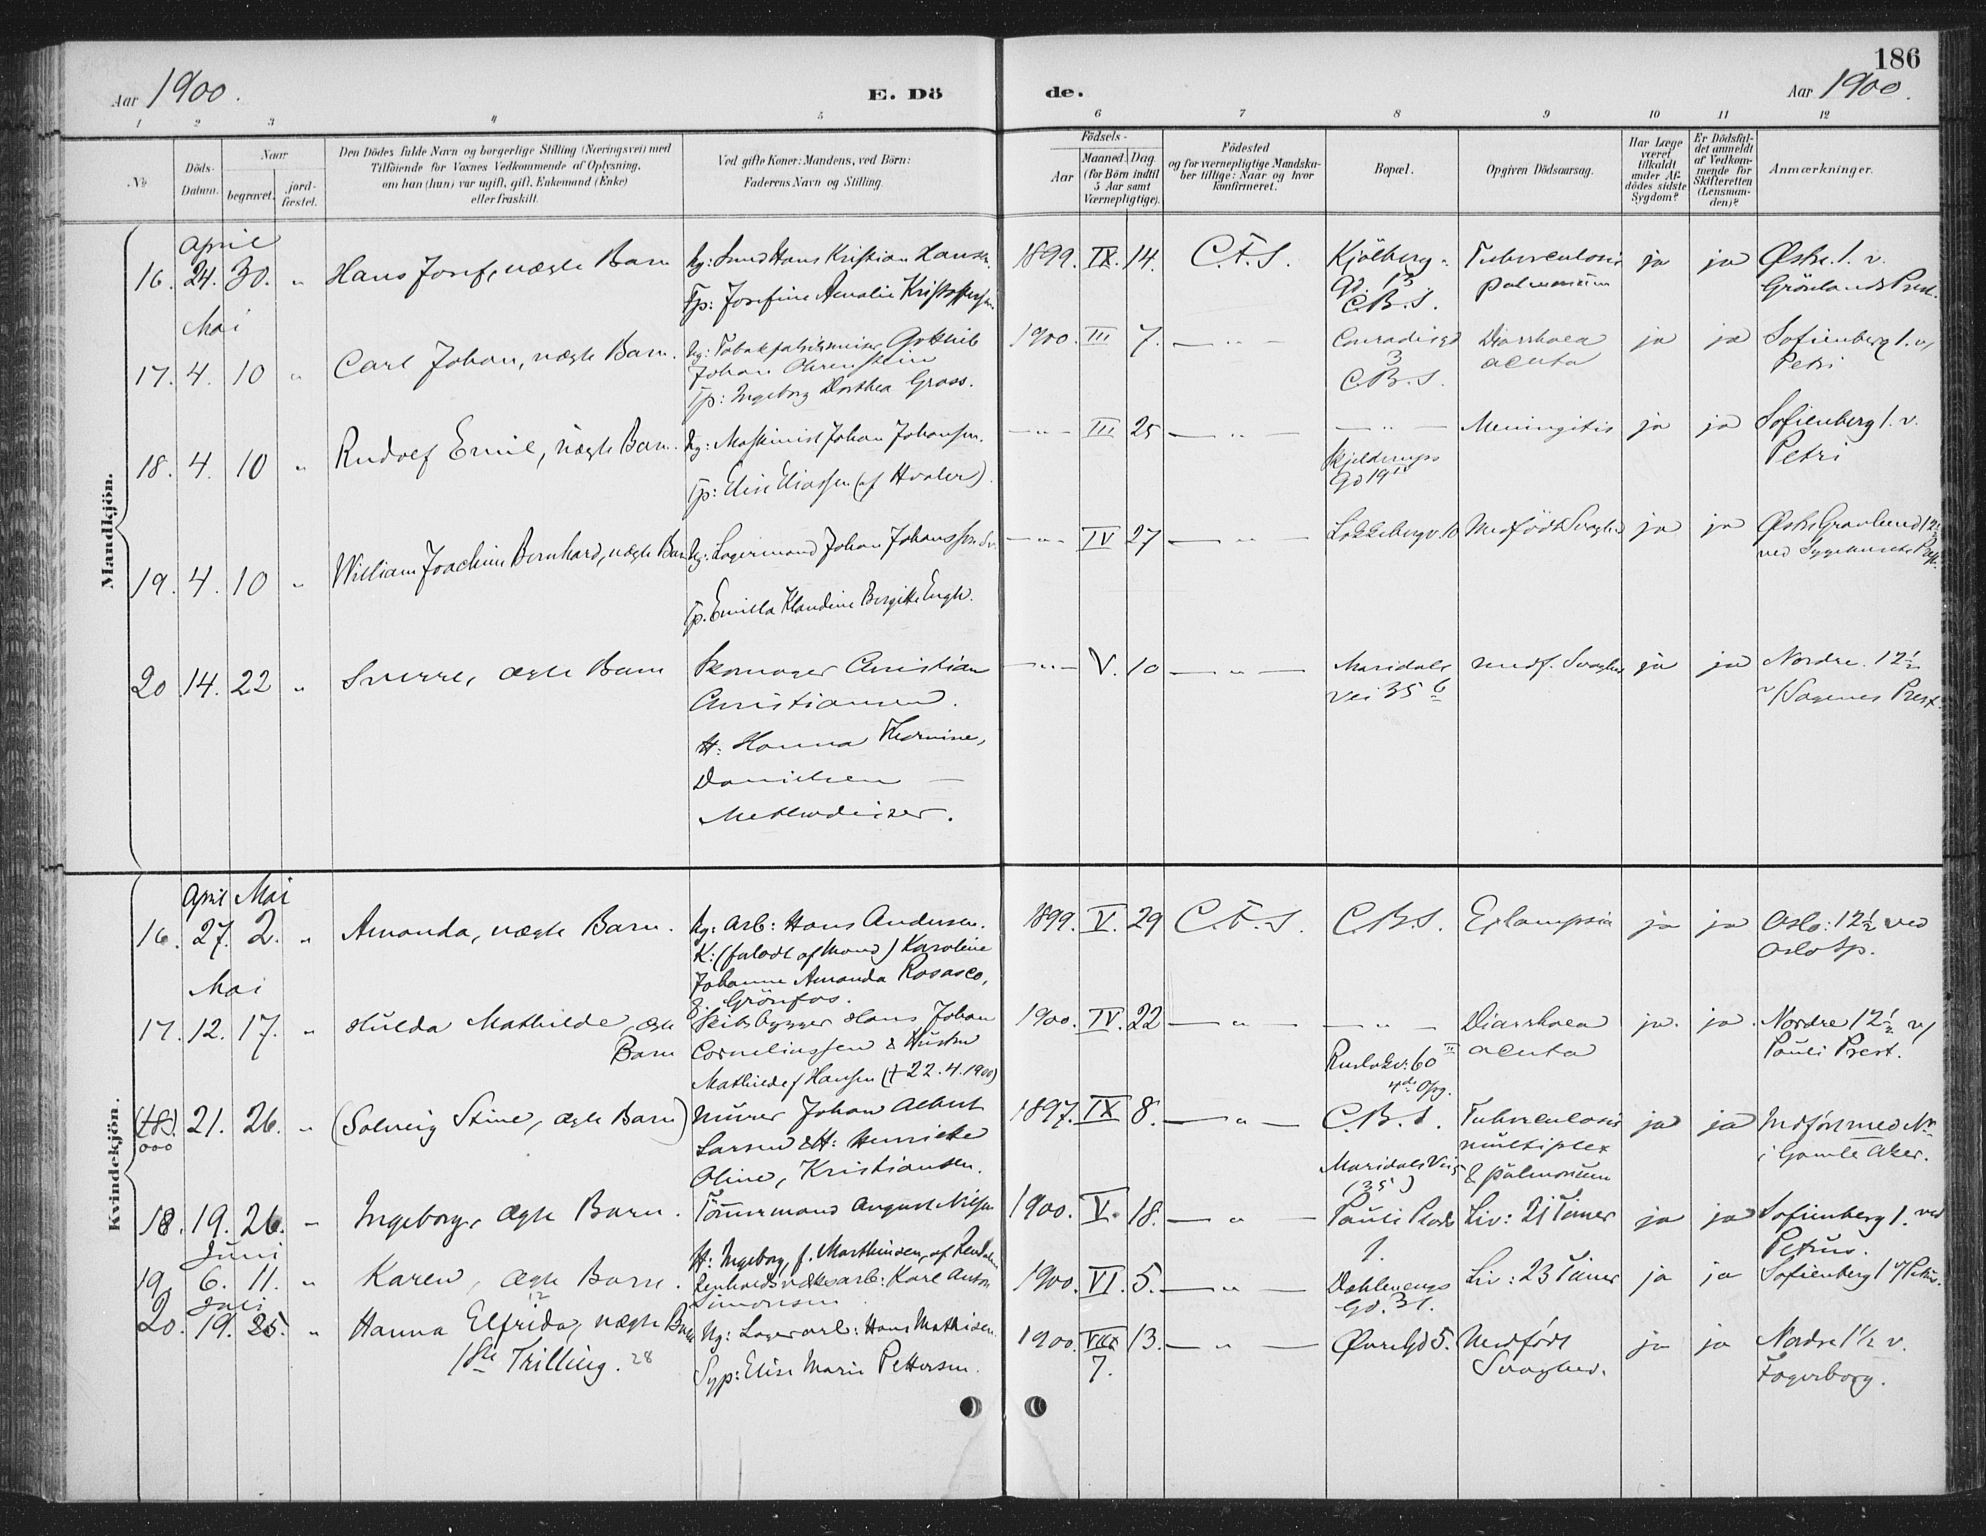 186
Aar 1900.
E. Dö
de.
Aar 1900.
1 2 3 4 5 6 7 8 9 10 11 12
No
Döds-Datum.
Naar
begravet.
jord-fæstet.
Den Dödes fulde Navn og borgerlige Stilling (Næringsvei) med
Tilföiende for Voxnes Vedkommende af Oplysning,
om han (hun) var ugift, gift, Enkemand (Enke)
eller fraskilt.
Ved gifte Koner: Mandens, ved Börn:
Faderens Navn og Stilling.
Födsels-
Aar
Maaned. Dag.
(for Börn indtil
5 Aar samt
Værnepligtige).
Födested
og for værnepligtige Mandska-
ber tillige: Naar og hvor
konfirmeret.
Bopæl.
Opgiven Dödsaarsag.
Har Læge
været
tilkaldt
under Af-
dödes sidste
Sygdom?
Er Dödsfal-
det anmeldt
af Vedkom-
mende for
Skifteretten
(Lensman-
den)?
Anmærkninger.
Mandkjön.
April
16. 24. 30. " Hans Josef, uægte Barn
Ug: Smed Hans Kristian Hansen.
Fp: Josefine Amalie Kristoffersen
1899. IX. 14. C.F.S. Kjölberg-
Gd. 13
C.B.S.
Tuberculosis
pulmonum
ja ja Østre. 1. v.
Grönlands Prest.
Mai
17. 4. 10 " Carl Johan, uægte Barn.
Ug: Tobakfabrikmester Gottlieb
Johan Ohrenstein
Fp: Ingeborg Dorthea Grass.
1900. III 7. — " — Conradisgd
3
C.B.S.
Diarrhoea
acuta
ja ja Sofienberg 1. v/
Petri
18. 4. 10 " Rudolf Emil, uægte Barn.
Ug: Maskinist Johan Johansen.
Fp: Elise Eliassen (af Hvaler)
— " — III 25 — " — — " —
Skjelderups
Gd 19
Meningitis ja ja Sofienberg 1. v.
Petri
19. 4. 10 " William Joachim Bernhard, uægte Barn
Ug: Lagermand Johan Johansson Sv.
Fp. Emilla Klaudine Birgitte Engh.
— " — IV 27 — " — Løkkebergv. 10 Medfødt Svaghed ja ja Østre Gravlund 12½
ved Sygehusets Prest.
20 14. 22 " Sverre, ægte Barn
Skomager Christian
Christiansen.
H: Hanna Hermine,
Danielsen —
Methodister.
— " — V. 10 — " — Maridals
vei 35 b
medf. Svaghed ja ja Nordre. 12½
v/Sagenes Prest.
Kvindekjön.
April Mai
16. 27. 2. " Amanda, uægte Barn.
Ug: Arb: Hans Andersen.
K: (forladt af Mand) Karoline
Johanne Amanda Rosasco,
f. Grönfos.
1899. V. 29 C.F.S. C.B.S. Eclampsia ja ja Oslo: 12½ ved
Oslo Sp.
Mai
17. 12. 17. " Hulda Mathilde, ægte
Barn
Skibsbygger Hans Johan
Corneliussen & Hustru
Mathilde f Hansen (+22.4.1900)
1900. IV. 22 — " — — " —
60 II
4de Opg.
Diarrhoea
acuta
ja. ja. Nordre 12½ v/
Pauli Prest.
(18). 21. 26. " (Solveig Stine, ægte Barn)
000
Murer Johan Albert
Larsen & H: Henriette
Oline, Kristiansen.
1897. IX 8. — " C.B.S.
Maridals Vei 5
(35)
Tuberculosis
multiplex
& pulmonum
ja ja Indført med Nr
i Gamle Aker.
18. 19. 26. " Ingeborg, ægte Barn.
Tömmermand August Nilsen
H: Ingeborg, f. Marthinsen, af
1900. V. 18. — " — Pauli Plads
1.
Liv: 21 Timer ja ja Sofienberg 1. ved
Petrus.
Juni
19. 6. 11. " Karen, ægte Barn.
Renholdsvæksarb: Karl Anton
Simonsen
1900. VI. 5. — " — Dahlenengs
Gd. 31.
Liv: 23 Timer ja ja Sofienberg 1 v/Petrus.
Juli
20. 19. 25. " Hanna Elfrida, uægte Barn
1ste Trilling. 28
Ug: Lagerarb: Hans Mathisen.
Syp: Elise Marie Pettersen.
1900. VII 13. — " — Øvre Gd 5. Medfödt
7.
Svaghed.
ja ja Nordre 1½ v.
Fagerborg.